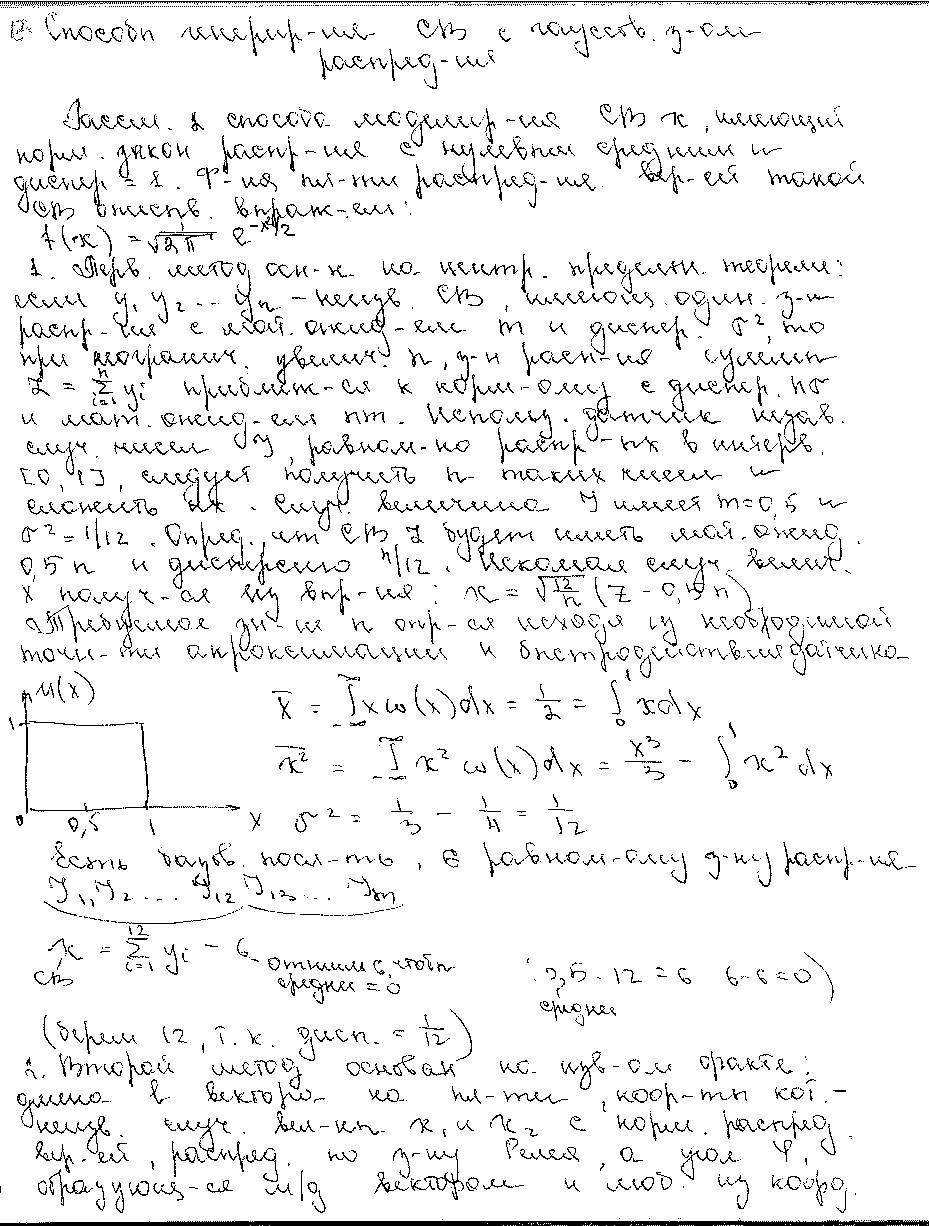 Способы генерир-ия СВ с гауссов. з-ом
распред-ия
Рассм. 2 способа моделир-ия СВ x, имеющий
норм. закон распр-ия с нулевым средним и
диспер = 1. Ф-ия пл-ти распред-ия вер-ей такой
СВ описыв. выраж-ем:
f(x) = 1/√2π e^-x²/2
1. Перв. метод осн-н на центр. пределн. теореме:
если y₁ y₂ ... yₙ - незав. СВ, имеющ. один. з-н
распр-ия с мат. ожид-ем m и диспер. σ², то
при неогранич. увелич. n, з-н расп-ия суммы
Z = ⁿΣᵢ₌₁ yᵢ приближ-ся к норм-ому с диспер. nσ
и мат. ожид-ем nm. Использ. датчик незав.
случ. чисел J, равном-но распр-ых в интерв.
[0,1], следует получить n таких чисел и
сложить их. Случ. величина J имеет m=0,5 и
σ²=1/12. Опред., что СВ Z будет иметь мат. ожид.
0,5n и дисперсию n/12. Искомая случ. велич.
X получ-ся из выр-ия: x = √12/n (Z - 0,5n)
Требуемое зн-ие n опр-ся исходя из необходимой
точн-ти апроксимации и быстродействия датчика
u(x)
1
0 0,5 1 x
x̄ = ∫xω(x)dx = 1/2 = ₀∫¹ xdx
x̄² = ∫x²ω(x)dx = x³/3 - ₀∫¹ x² dx
σ² = 1/3 - 1/4 = 1/12
Есть базов. посл-ть, ∈ равном-ому з-ну распр-ия
J₁, J₂ ... J₁₂ J₁₃ ... Jₘ
x = ¹²Σᵢ₌₁ yᵢ - 6
СВ
отнима 6, чтобы
среднее = 0
0,5·12 = 6 6-6=0)
среднее
(берем 12, т.к. дисп. = 1/12)
2. Второй метод основан на изв-ом факте:
длина в вектора на пл-ти, коор-ты кот. -
незав. случ. вел-ны x₁ и x₂ с норм. распред.
вер-ей, распред. по з-ну Релея, а угол φ,
образующ-ся м/д вектором и люб. из коорд.